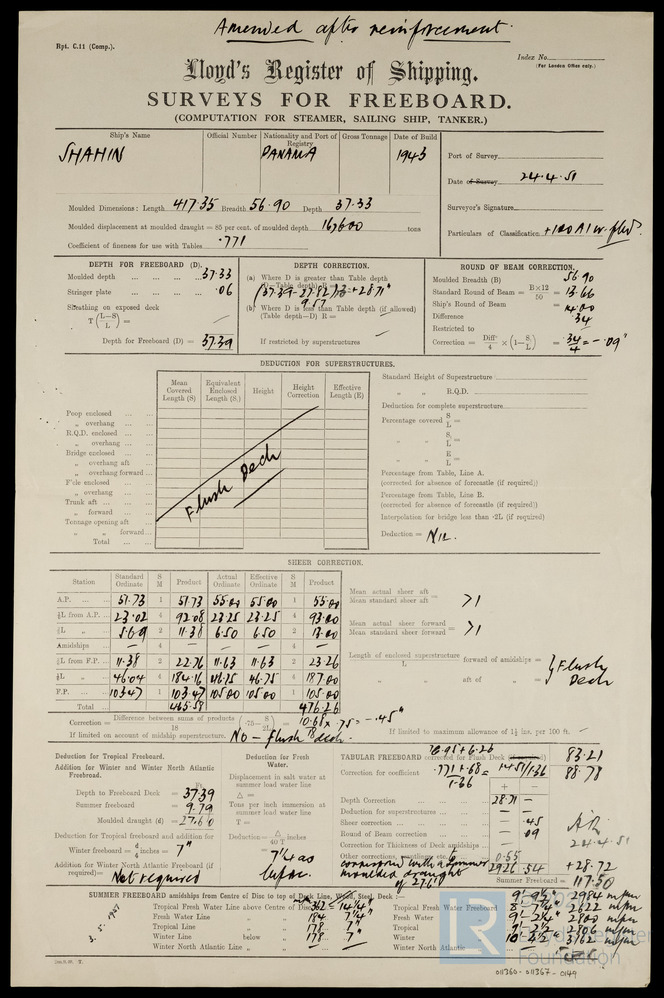 Amended after reinforcement.
Rpt. C.11 (Comp.).
Index No.
(For London Office only.)
Lloyd's Register of Shipping.
SURVEYS FOR FREEBOARD.
(COMPUTATION FOR STEAMER, SAILING SHIP, TANKER.)
Ship's Name Official Number Nationality and Port of Registry Gross Tonnage Date of Build
SHAHIN PANAMA 1943
Port of Survey
Date of Survey 24.4.51
Surveyor's Signature
Particulars of Classification +100A1
Moulded Dimensions: Length 417.35 Breadth 56.90 Depth 37.33
Moulded displacement at moulded draught = 85 per cent. of moulded depth 16,600 tons
Coefficient of fineness for use with Tables .771
DEPTH FOR FREEBOARD (D).
Moulded depth 37.33
Stringer plate .06
Sheathing on exposed deck
T (L-S/L) =
Depth for Freeboard (D) = 37.39
DEPTH CORRECTION.
(a) Where D is greater than Table depth
(D-Table depth) R =
(37.39-27.82)3 = +28.71"
9.57
(b) Where D is less than Table depth (if allowed)
(Table depth-D) R =
If restricted by superstructures
ROUND OF BEAM CORRECTION.
Moulded Breadth (B) 56.90
Standard Round of Beam = B×12/50 = 13.66
Ship's Round of Beam = 14.00
Difference .34
Restricted to
Correction = Diff./4 × (1-S₁/L) = .34/4 = -.09"
DEDUCTION FOR SUPERSTRUCTURES.
Mean Covered Length (S) Equivalent Enclosed Length (S₁) Height Height Correction Effective Length (E)
Poop enclosed
" overhang
R.Q.D. enclosed
" overhang
Bridge enclosed
" overhang aft
" overhang forward
F'cle enclosed
" overhang
Trunk aft
" forward
Tonnage opening aft
" " forward
Total
Flush Deck
Standard Height of Superstructure
" " R.Q.D.
Deduction for complete superstructure
Percentage covered S/L =
" " S₁/L =
" " E/L =
Percentage from Table, Line A.
(corrected for absence of forecastle (if required))
Percentage from Table, Line B.
(corrected for absence of forecastle (if required))
Interpolation for bridge less than ·2L (if required)
Deduction = Nil.
SHEER CORRECTION.
Station Standard Ordinate S M Product Actual Ordinate Effective Ordinate S M Product
A.P. 51.73 1 51.73 55.00 55.00 1 55.00
⅙L from A.P. 23.02 4 92.08 23.25 23.25 4 93.00
⅓L " 5.69 2 11.38 6.50 6.50 2 13.00
Amidships — 4 — — — 4 —
⅓L from F.P. 11.38 2 22.76 11.63 11.63 2 23.26
⅙L " 46.04 4 184.16 46.75 46.75 4 187.00
F.P. 103.47 1 103.47 105.00 105.00 1 105.00
Total 465.58 476.26
Mean actual sheer aft / Mean standard sheer aft = >1
Mean actual sheer forward / Mean standard sheer forward = >1
Length of enclosed superstructure / L forward of amidships =
" aft of " =
} Flush Deck
Correction = Difference between sums of products / 18 (·75 - S/2L) = 10.68/18 × .75 = -.45"
If limited on account of midship superstructure. No - flush deck.
If limited to maximum allowance of 1½ ins. per 100 ft.
Deduction for Tropical Freeboard.
Addition for Winter and Winter North Atlantic Freeboard.
Depth to Freeboard Deck = 37.39
Summer freeboard = 9.79
Moulded draught (d) = 27.60
Deduction for Tropical freeboard and addition for
Winter freeboard = d/4 inches = 7"
Addition for Winter North Atlantic Freeboard (if required) =
Not required
Deduction for Fresh Water.
Displacement in salt water at summer load water line
Δ =
Tons per inch immersion at summer load water line
T =
Deduction = Δ/40 T inches
= 7¼ as
before.
76.95 + 6.26
TABULAR FREEBOARD corrected for Flush Deck 83.21
Correction for coefficient .771+.68/1.36 = 1.451/1.36 88.78
+ -
Depth Correction 28.71 —
Deduction for superstructures — —
Sheer correction — .45
Round of Beam correction — .09
Correction for Thickness of Deck amidships
Other corrections, scantlings, etc. to 0.55
correspond with a summer
moulded draught
of 27.6"
29.26 .54
24.4.51
+28.72
Summer Freeboard = 117.50
SUMMER FREEBOARD amidships from Centre of Disc to top of Deck Line, Wood, Steel, Deck :—
Tropical Fresh Water Line above Centre of Disc 362 = 14¼"
Fresh Water Line " " 184 7¼"
Tropical Line " " 178 7"
Winter Line below " 178 7"
Winter North Atlantic Line " "
9'-9½" 2984 m/m
Tropical Fresh Water Freeboard 8'-7¼" 2622 m/m
Fresh Water " 9'-2¼" 2800 m/m
Tropical " 9'-2½" 2806 m/m
Winter " 10'-4½" 3162 m/m
Winter North Atlantic "
3.5.1951
LR
Foundation
011360-011367-0149